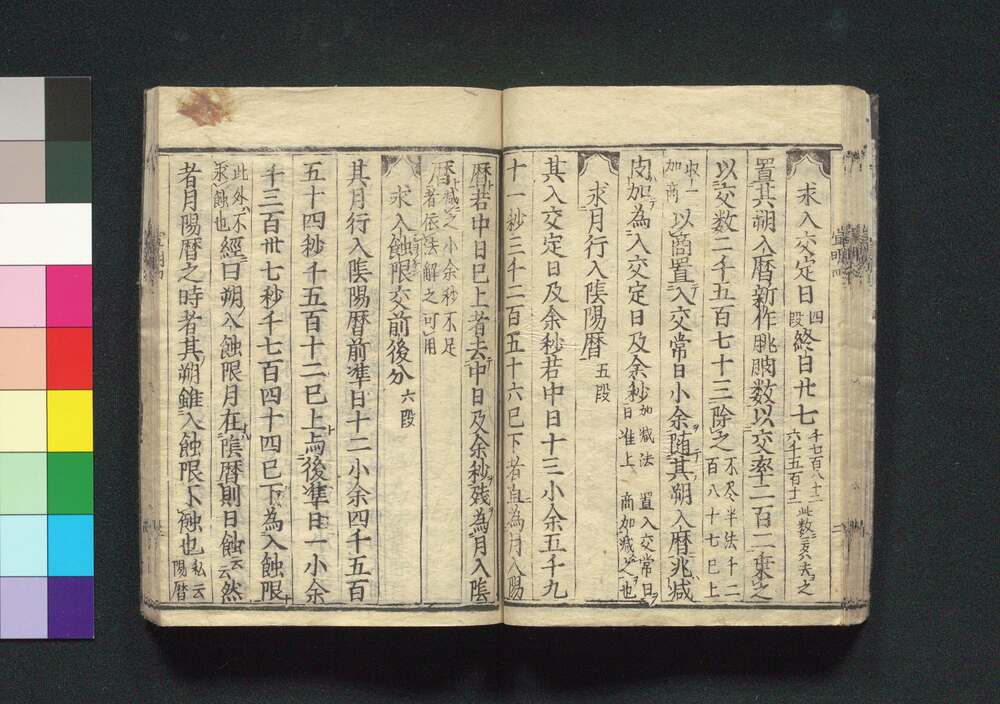 求入交定日 四段 終日廿七 千七百八十二 六千五百十二 此数ニ多ハ去之
置其朔入暦新作朓朒数以交率二百二乗之
以交数二千五百七十三除之 不尽半法千二百八十七已上
收一加商 以商置入交常日小余随其朔入暦兆減
肉加為入交定日及余秒 加減法 置入交常日准上 商加減之也
求月行入陰陽暦 五段
其入交定日及余秒若中日十三小余五千九
十一秒三千二百五十六已下者直為月入陽
暦若中日已上者去中日及余秒残為月入陰
暦 減之小余秒不足者依法解之可用
求入蝕限交前後分 六段
其月行入陰陽暦前準日十二小余四千五百
五十四秒千五百十二已上為後準日一小余
千三百卅七秒千七百四十四已下為入蝕限
此外ハ不蝕也 經曰朔入蝕限月在陰暦則日蝕云云 然
者月陽暦之時者其朔雖入蝕限不蝕也 私云陽暦